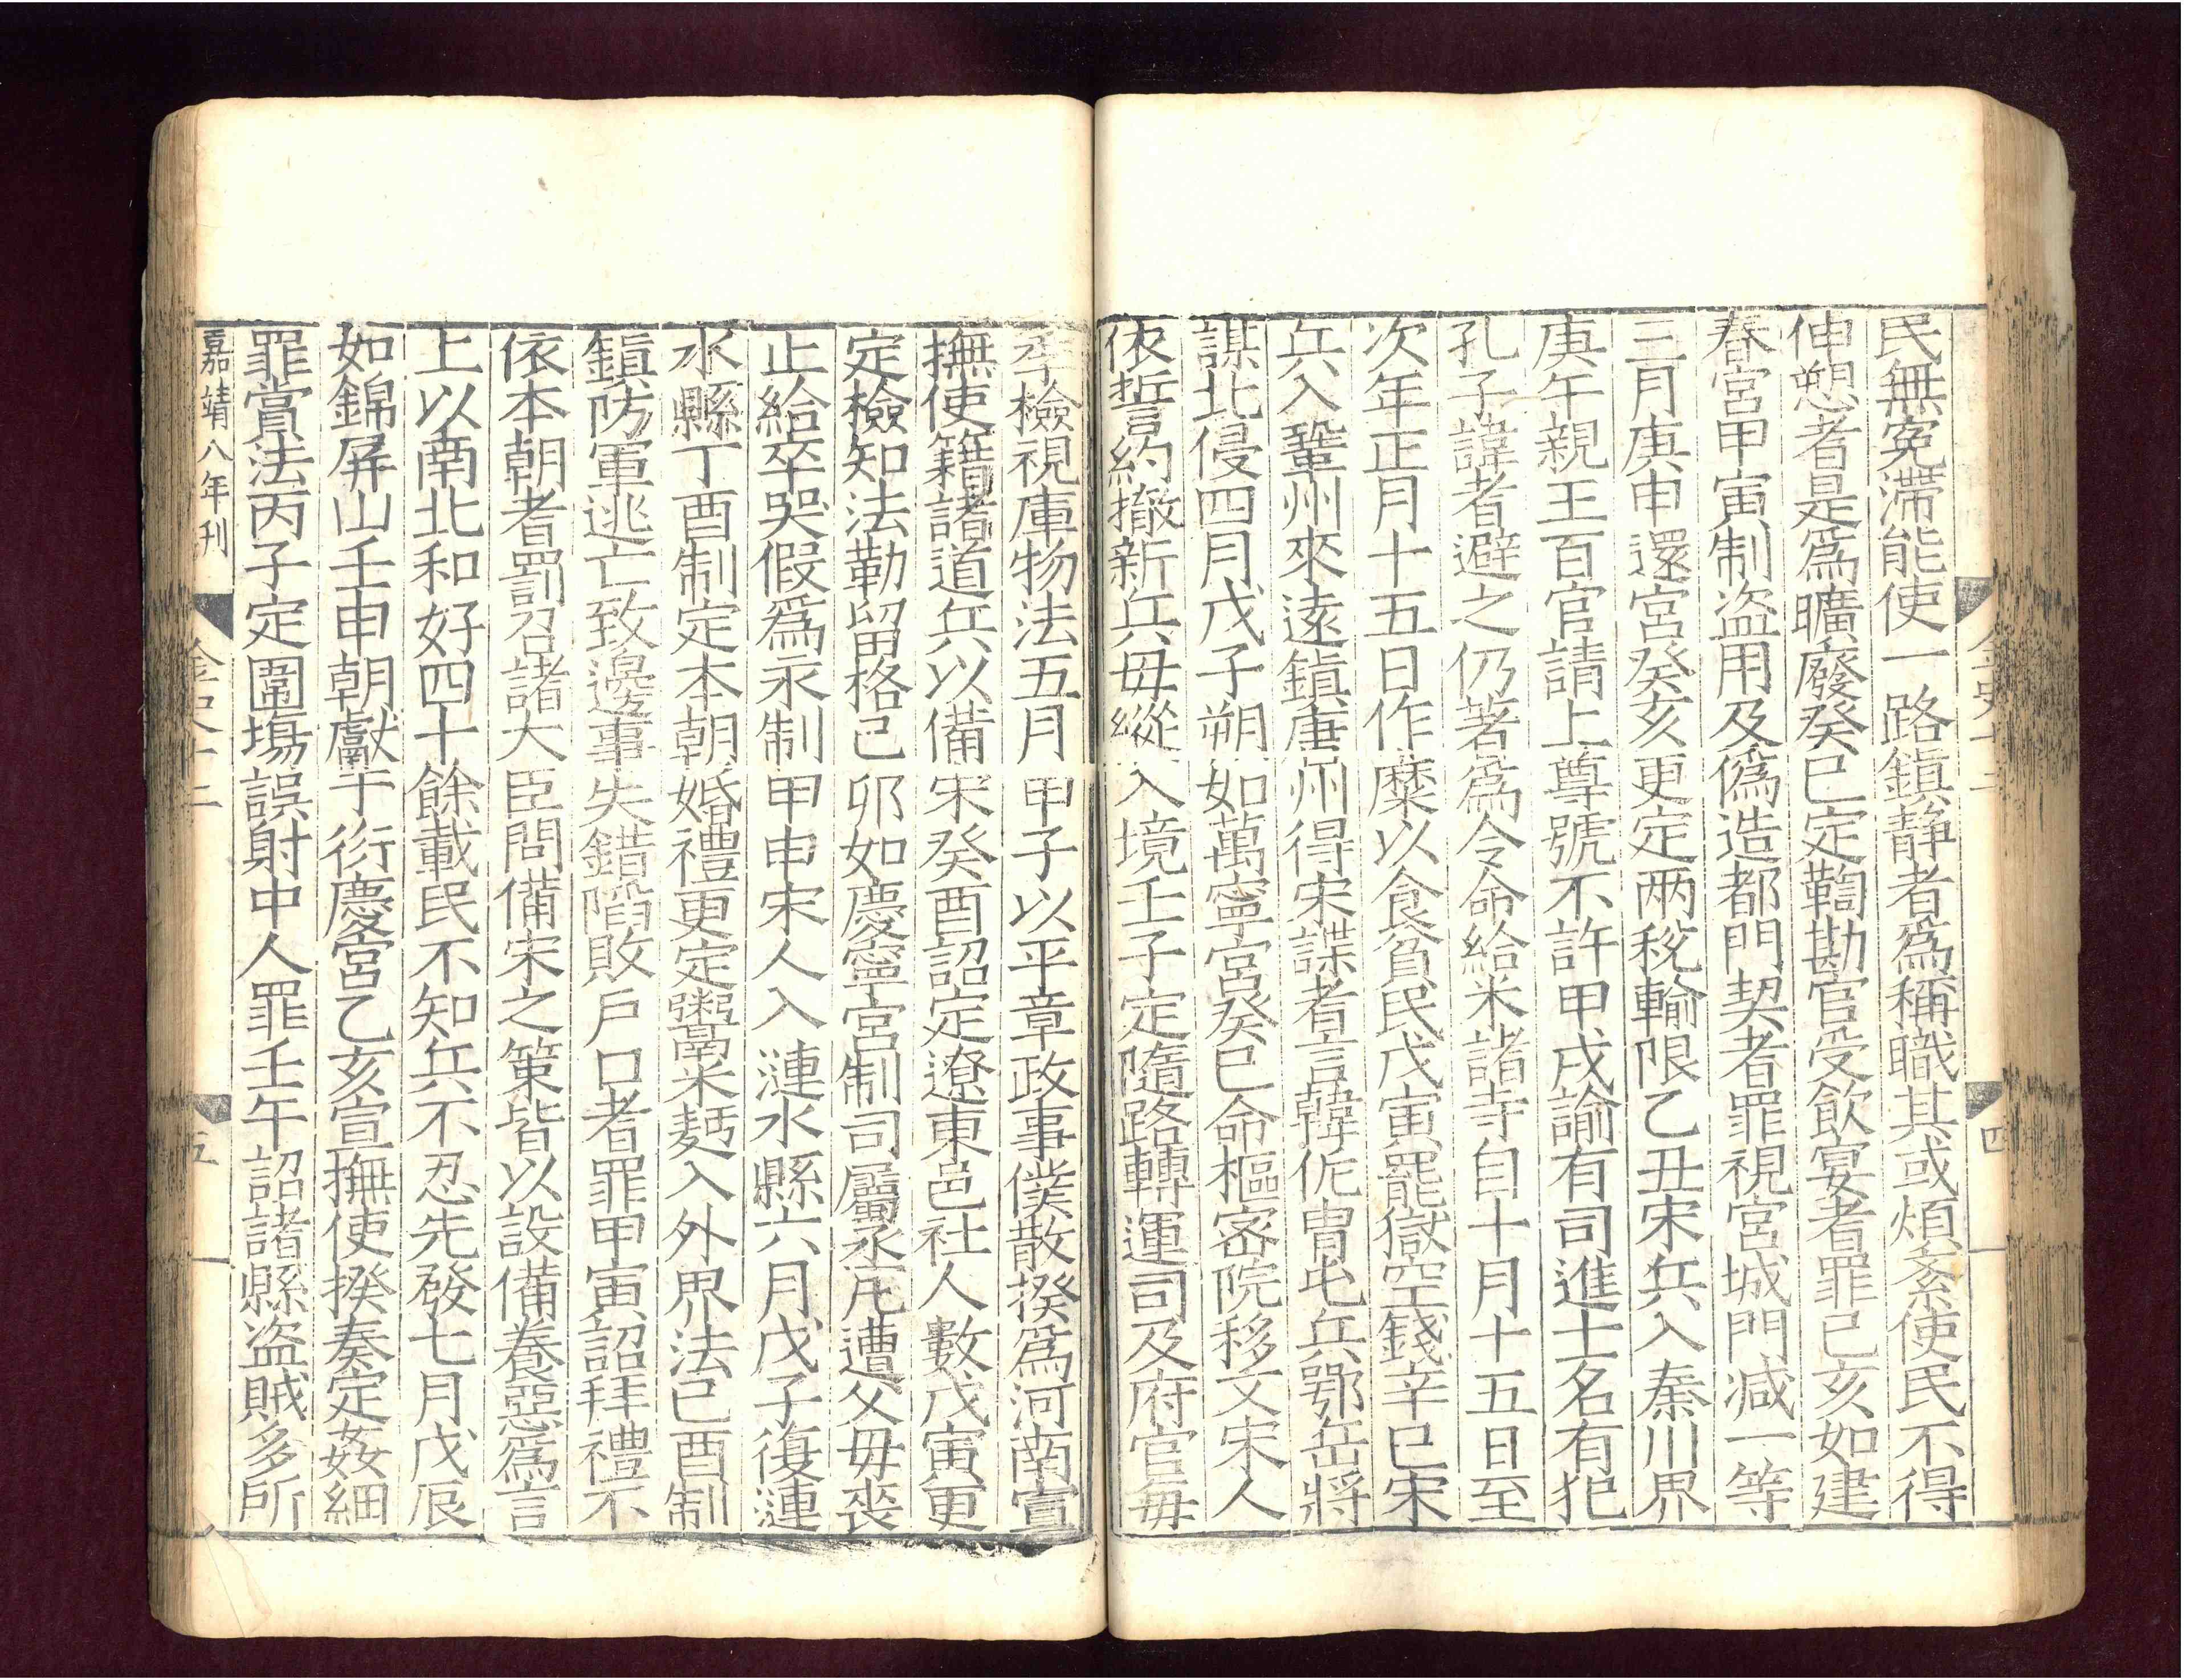 民無冤滯能使一路鎮静者爲稱職其或煩紊使民不得
伸愬者是爲曠廢癸巳定鞫勘官受飲宴者罪己亥如建
春宮甲寅制盗用及僞造都門契者罪視宮城門减一等
三月庚申還宮癸亥更定兩稅輸限乙丑宋兵入秦川界
庚午親王百官請上尊號不許甲戌諭有司進士名有犯
孔子諱者避之仍著爲令命給米諸寺自十月十五日至
次年正月十五日作糜以食貧民戊寅罷獄空錢辛巳宋
兵入鞏州來遠鎮唐州得宋諜者言韓侂胄屯兵鄂岳將
謀北侵四月戊子朔如萬寧宮癸巳命樞密院移文宋人
依誓約撤新兵毋縱入境壬子定隨路轉運司及府官每
季檢視庫物法五月甲子以平章政事僕散揆爲河南宣
撫使籍諸道兵以備宋癸酉詔定遼東邑社人數戊寅更
定檢知法勒留格己卯如慶寧宮制司屬丞凡遭父毋喪
止給卒哭假爲永制甲申宋人入漣水縣六月戊子復漣
水縣丁酉制定本朝婚禮更定鬻米麪入外界法己酉制
鎮防軍逃亡致邊事失錯陷敗戶口者罪甲寅詔拜禮不
依本朝者罰召諸大臣問備宋之策皆以設備養惡爲言
上以南北和好四十餘載民不知兵不忍先發七月戊辰
如錦屏山壬申朝獻于衍慶宮乙亥宣撫使揆奏定姦細
罪賞法丙子定圍場誤射中人罪壬午詔諸縣盗賊多所
嘉靖八年刊 金史十二 五